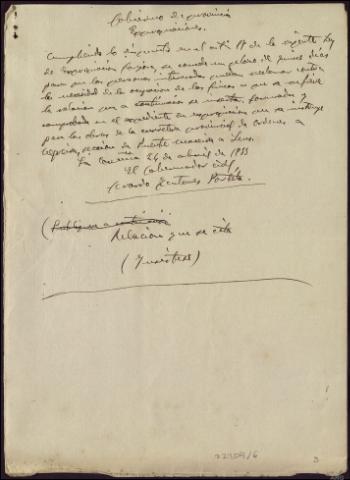 Gobierno de provincia
Expropiaciones.
Cumpliendo lo dispuesto en el artº 17 de la vigente Ley
de Expropiación forzosa, se concede un plazo de quince días
para que las personas interesadas puedan reclamar contra
la necesidad de la ocupación de las fincas a que se refiere
la relación que a continuación se inserta, formada y
comprobada en el expediente de expropiación que se instruye
para las obras de la carretera provincial de Ordenes a
sección de Puente
La Coruña 26 de abril de 1933
El Gobernador civil,
(Publíquese a continuación
Relación que se cita
(Insértese)
3